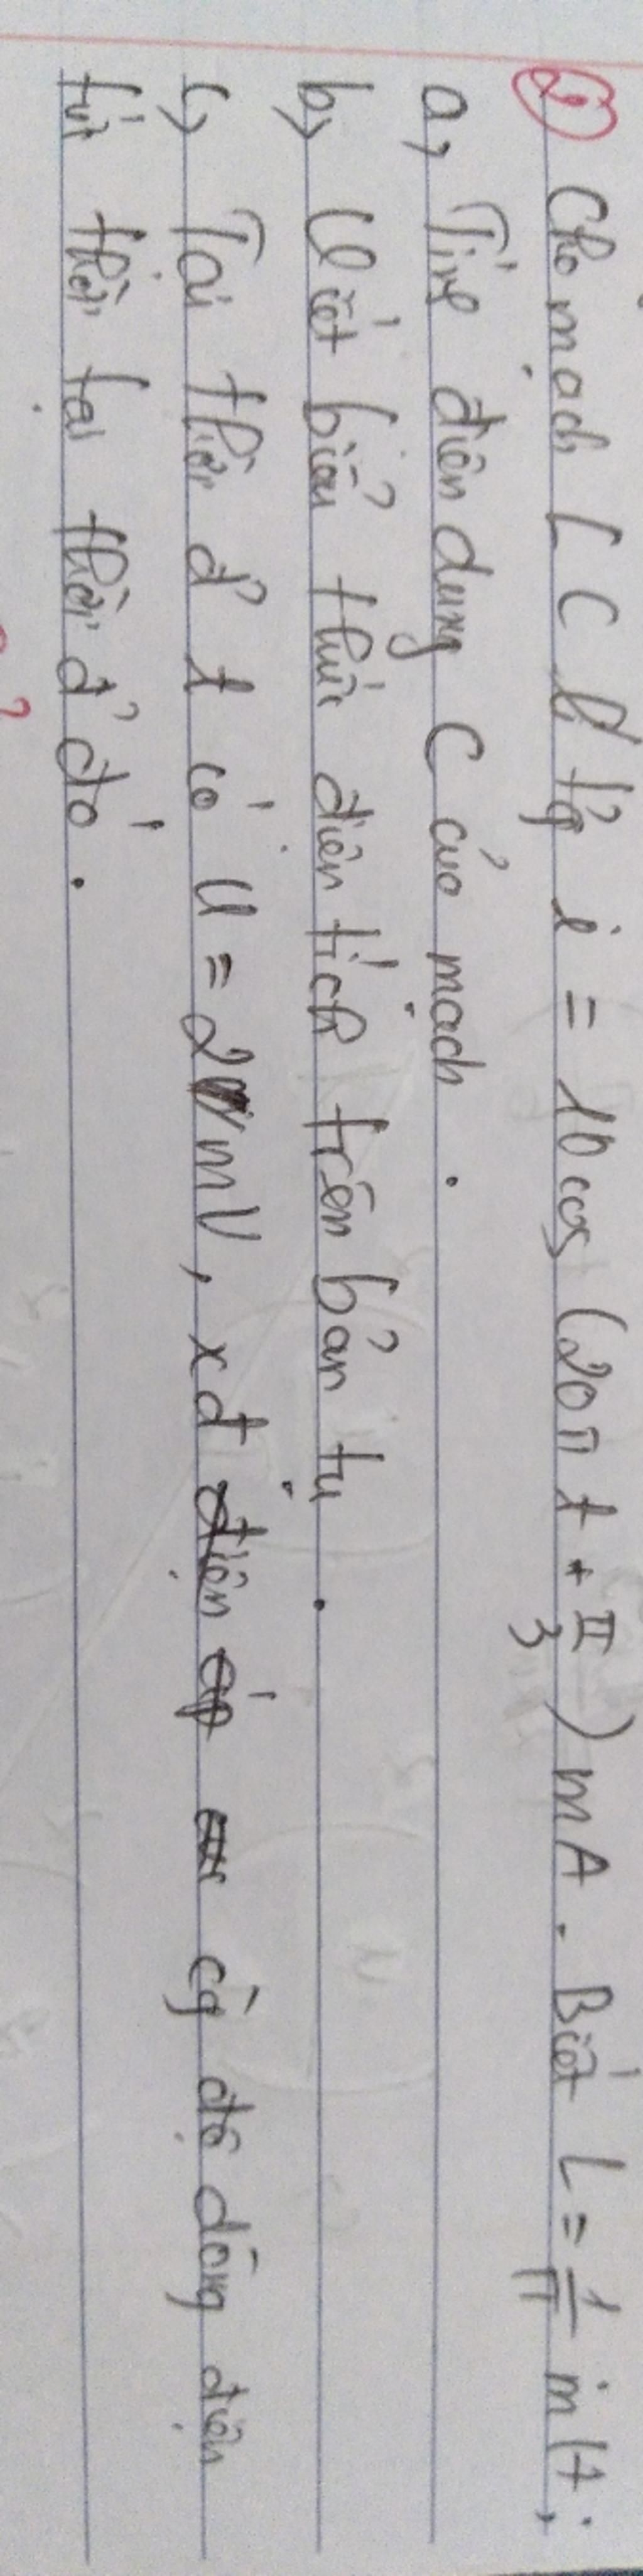 ② Cho mạch LC lí tg i = 10 cos (20π t + π/3) mA. Biết L = 1/π mH;
a, Tính điện dung C của mạch.
b, Viết biểu thức điện tích trên bản tụ.
c, Tại thời đ' t có U = 2 mV, xđ cg độ dòng điện
tức thời tại thời đ' đó.